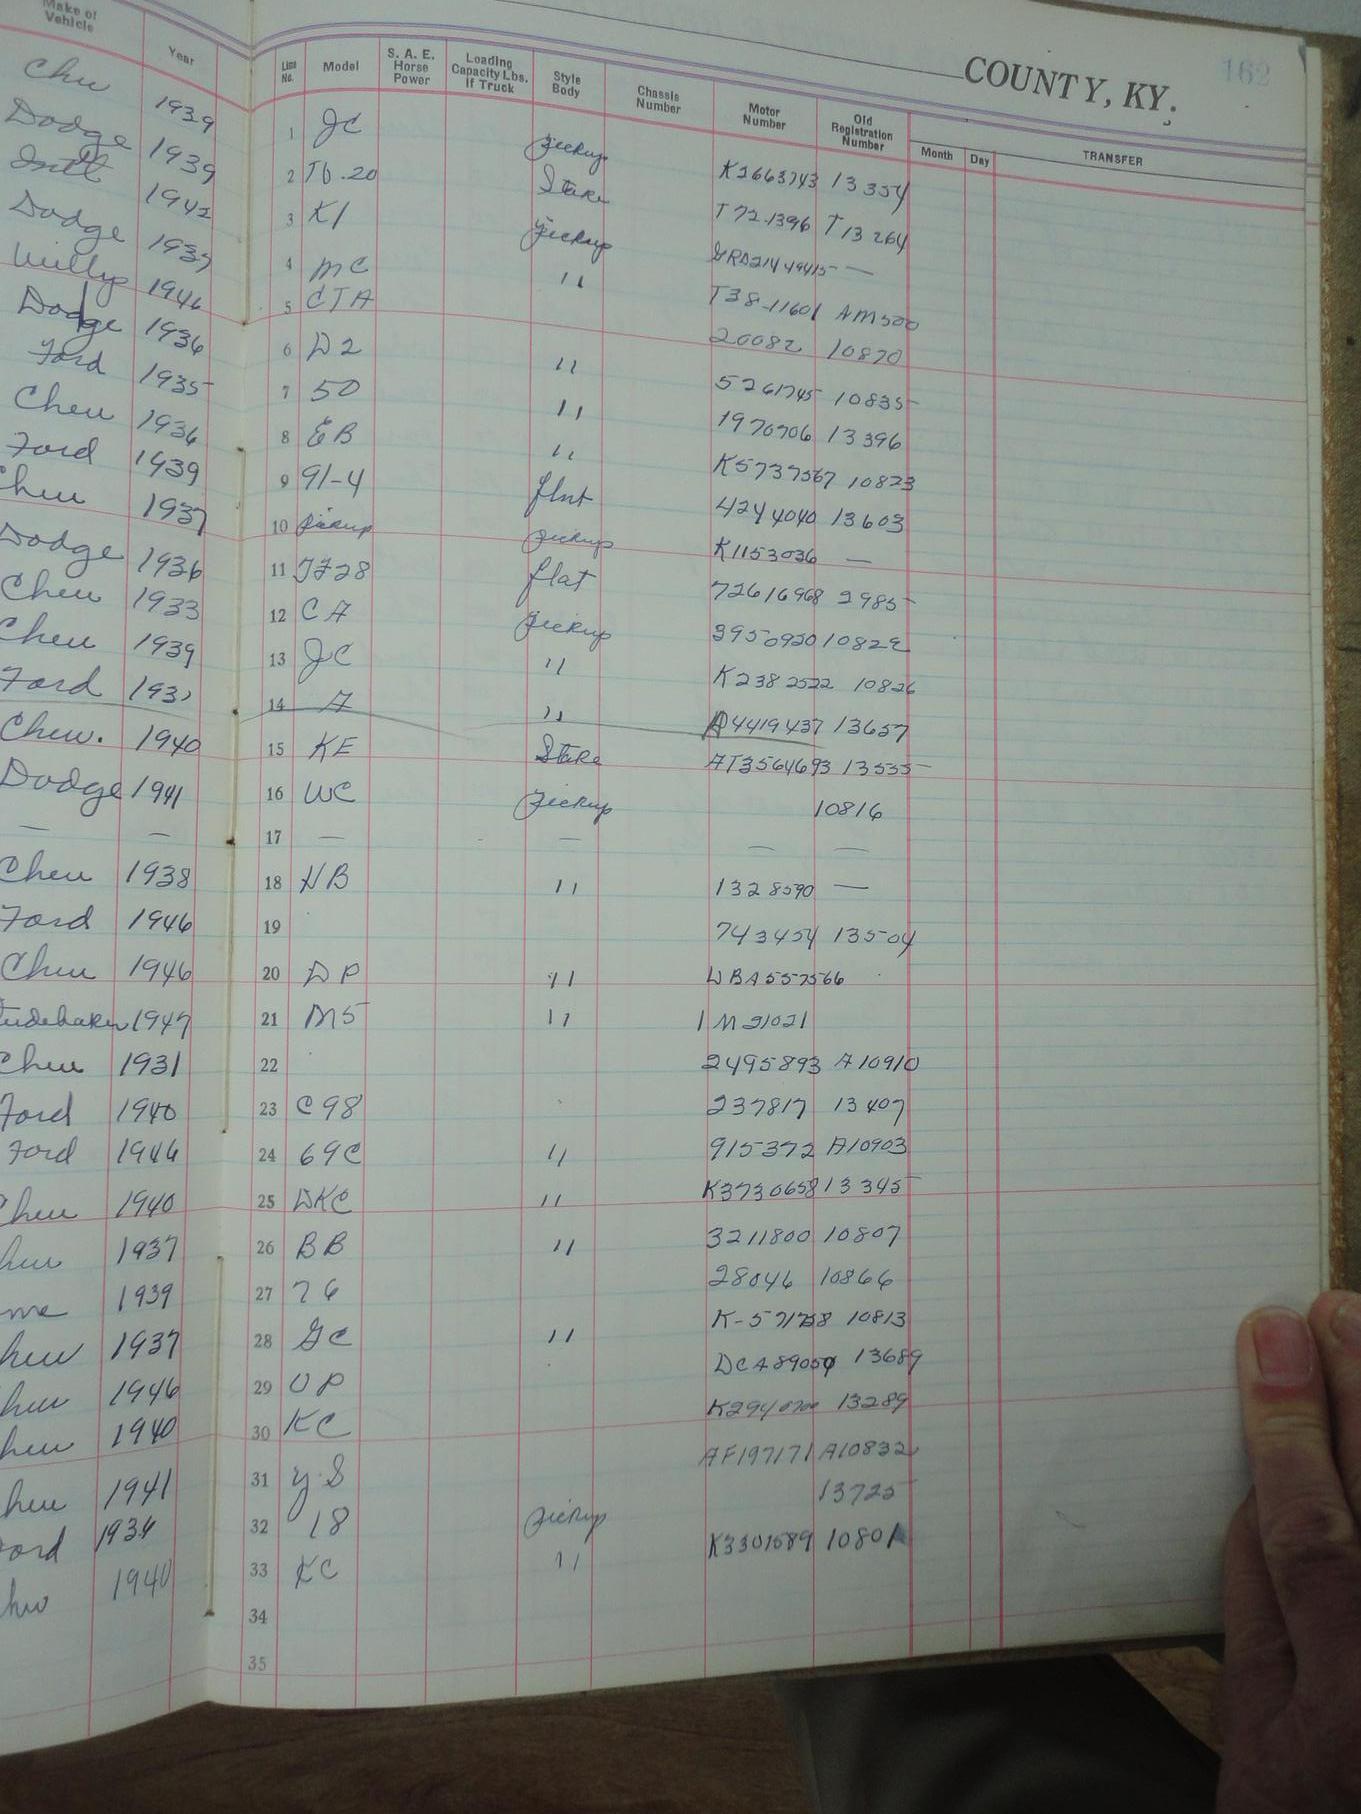 162
COUNTY, KY.
Make of Vehicle Year Line No. Model S. A. E. Horse Power Loading Capacity Lbs. if Truck Style Body Chassis Number Motor Number Old Registration Number Month Day TRANSFER
Chev 1939 1 JC Pickup K2663743 13354
Dodge 1939 2 TD.20 Stake T72-1396 T13264
Intl 1942 3 K1 Pickup GRD21449415 —
Dodge 1937 4 MC " T38-11601 AM500
Willys 1946 5 CTA 20082 10870
Dodge 1936 6 D2 " 5261745 10835
Ford 1935 7 50 " 1970706 13396
Chev 1936 8 EB " K5737567 10823
Ford 1939 9 91-4 flat 4244040 13603
Chev 1937 10 pickup pickup K1153036 —
Dodge 1936 11 TF28 flat 72616968 2985
Chev 1933 12 CA Pickup 3950920 10822
Chev 1939 13 JC " K2382522 10826
Ford 14 A " A4419437 13657
Chev. 1940 15 KF Stake AT3564693 13535
Dodge 1941 16 WC Pickup 10816
— — 17 — — — —
Chev 1938 18 HB " 1328590 —
Ford 1946 19 743454 13504
Chev 1946 20 DP " DBA557566
tudebaker 1947 21 M5 " 1M21021
Chev 1931 22 2495893 A10910
Ford 1940 23 C98 237817 13407
Ford 1946 24 69C " 915372 A10903
Chev 1940 25 DKC " K3730658 13345
hev 1937 26 BB " 3211800 10807
me 1939 27 76 28046 10866
hev 1937 28 GC " 10813
hev 1946 29 OP 13689
hev 1940 30 KC 13289
hev 1941 31 Y.S AF197171 A10832
ord 1936 32 18 Pickup 13725
hev 1940 33 KC " K3301589 10801
34
35